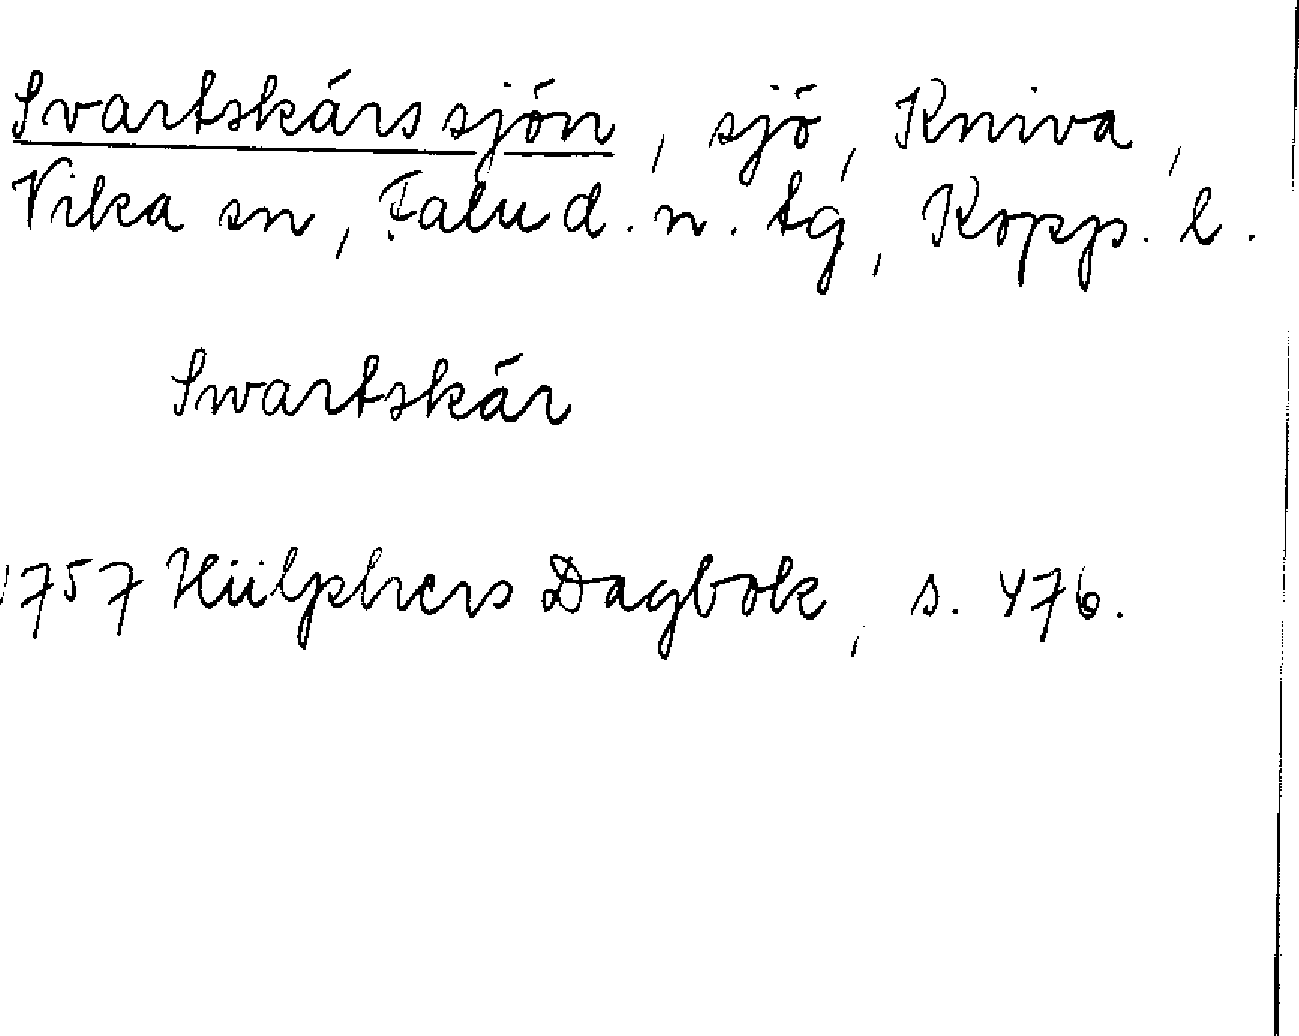 Svartskärssjön, sjö, Kniva,
Vika sn, Falu d. n. tg, Kopp. l.
Swartskär
1757 Hülphers Dagbok, s. 476.